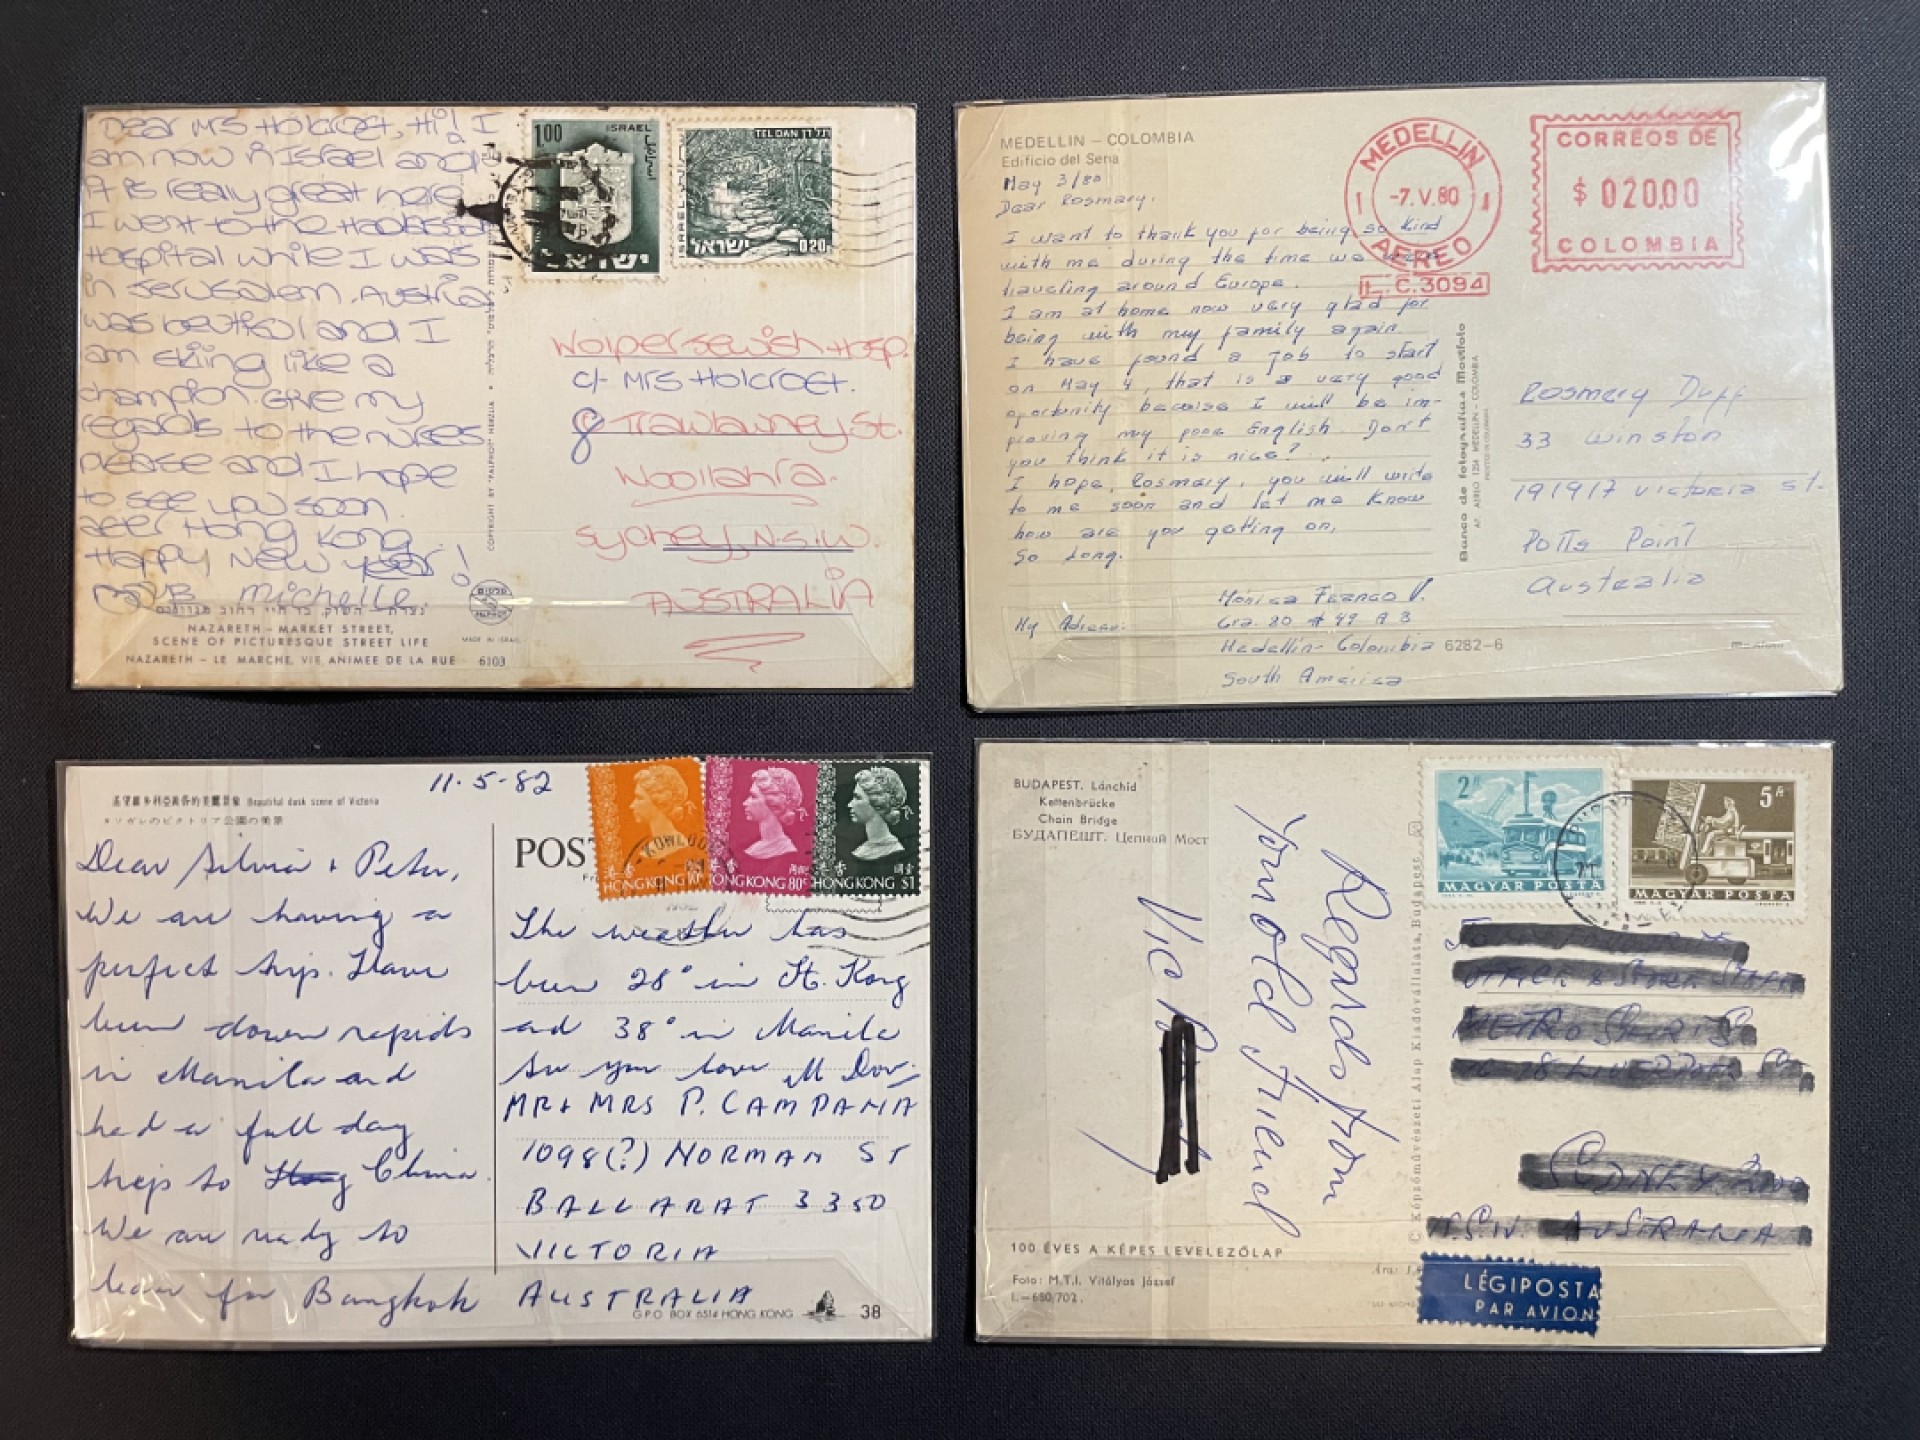 Dear Mrs Holcroft, Hi! I
am now in Israel and
it is really great here
I went to the Hadassah
Hospital while I was
in Jerusalem. Austria
was beutiful and I
am skiing like a
champion. Give my
regards to the nurses
please and I hope
to see you soon.
after Hong Kong
Happy New year!
Michelle.
נצרת – השוק, בו חיי רחוב
NAZARETH – MARKET STREET,
SCENE OF PICTURESQUE STREET LIFE
NAZARETH – LE MARCHE, VIE ANIMEE DE LA RUE 6103
MADE IN ISRAEL
PALPHOT
COPYRIGHT BY "PALPHOT" HERZLIA
1.00 ISRAEL
ישראל
TEL DAN תל דן
ISRAEL
ישראל 0.20
Wolper Jewish Hosp.
c/- Mrs Holcroft.
8 Trawlawney St.
Woollahra.
Sydney, N.S.W.
AUSTRALIA
MEDELLIN – COLOMBIA
Edificio del Sena
May 3/80
Dear Rosmary.
I want to thank you for being so kind
with me during the time we were
traveling around Europe.
I am at home now very glad for
being with my family again.
I have found a job to start
on May 4, that is a very good
oportunity becaise I will be im-
proving my poor English. Don't
you think it is nice?..
I hope, Rosmary, you will write
to me soon and let me know
how are you getting on.
So long.
Mónica Franco V.
My Adress: Cra. 80 # 49 A 3
Medellín- Colombia 6282-6
South America
MEDELLIN
1 -7.V.80 1
AEREO
L.C.3094
CORREOS DE
$ 020,00
COLOMBIA
Banco de fotografias Mostfoto
AP. AEREO 1254 MEDELLIN - COLOMBIA
Rosmery Duff
33 Winston
191917 Victoria St.
Potts Point
Australia
Beautiful dusk scene of Victoria
11.5-82
POST
HONG KONG
HONG KONG 80c
HONG KONG $1
KOWLOON
Dear Silvia + Peter,
We are having a
perfect trip. Have
been down rapids
in Manila and
had a full day
trip to China.
We are ready to
leave for Bangkok
The weather has
been 28° in H. Kong
and 38° in Manila
See you love M Dor
MR + MRS P. CAMPANA
1098(?) NORMAN ST
BALLARAT 3350
VICTORIA
AUSTRALIA
G.P.O. BOX 6514 HONG KONG 38
BUDAPEST. Lánchíd
Kettenbrücke
Chain Bridge
БУДАПЕШТ. Цепной Мост
Regards from
Your old friend
Vic
100 ÉVES A KÉPES LEVELEZŐLAP
Foto: M.T.I. Vitályos József
L—680/702.
© Képzőművészeti Alap Kiadóvállalata, Budapest
2 Ft
MAGYAR POSTA
5 Ft
MAGYAR POSTA
SYDNEY 2000
N.S.W. AUSTRALIA
LÉGIPOSTA
PAR AVION